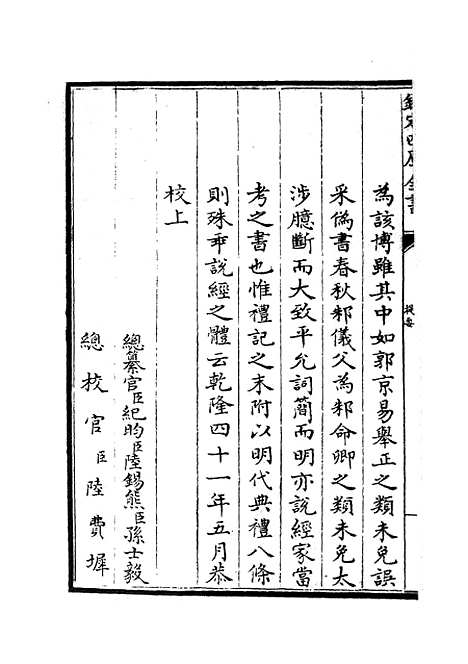 欽定四庫全書
提要
為該博雖其中如郭京易舉正之類未免誤
采偽書春秋邾儀父為邾命卿之類未免太
涉臆斷而大致平允詞簡而明亦說經家當
考之書也惟禮記之末附以明代典禮八條
則殊乖說經之體云乾隆四十一年五月恭
校上
總纂官臣紀昀臣陸錫熊臣孫士毅
總校官臣陸費墀